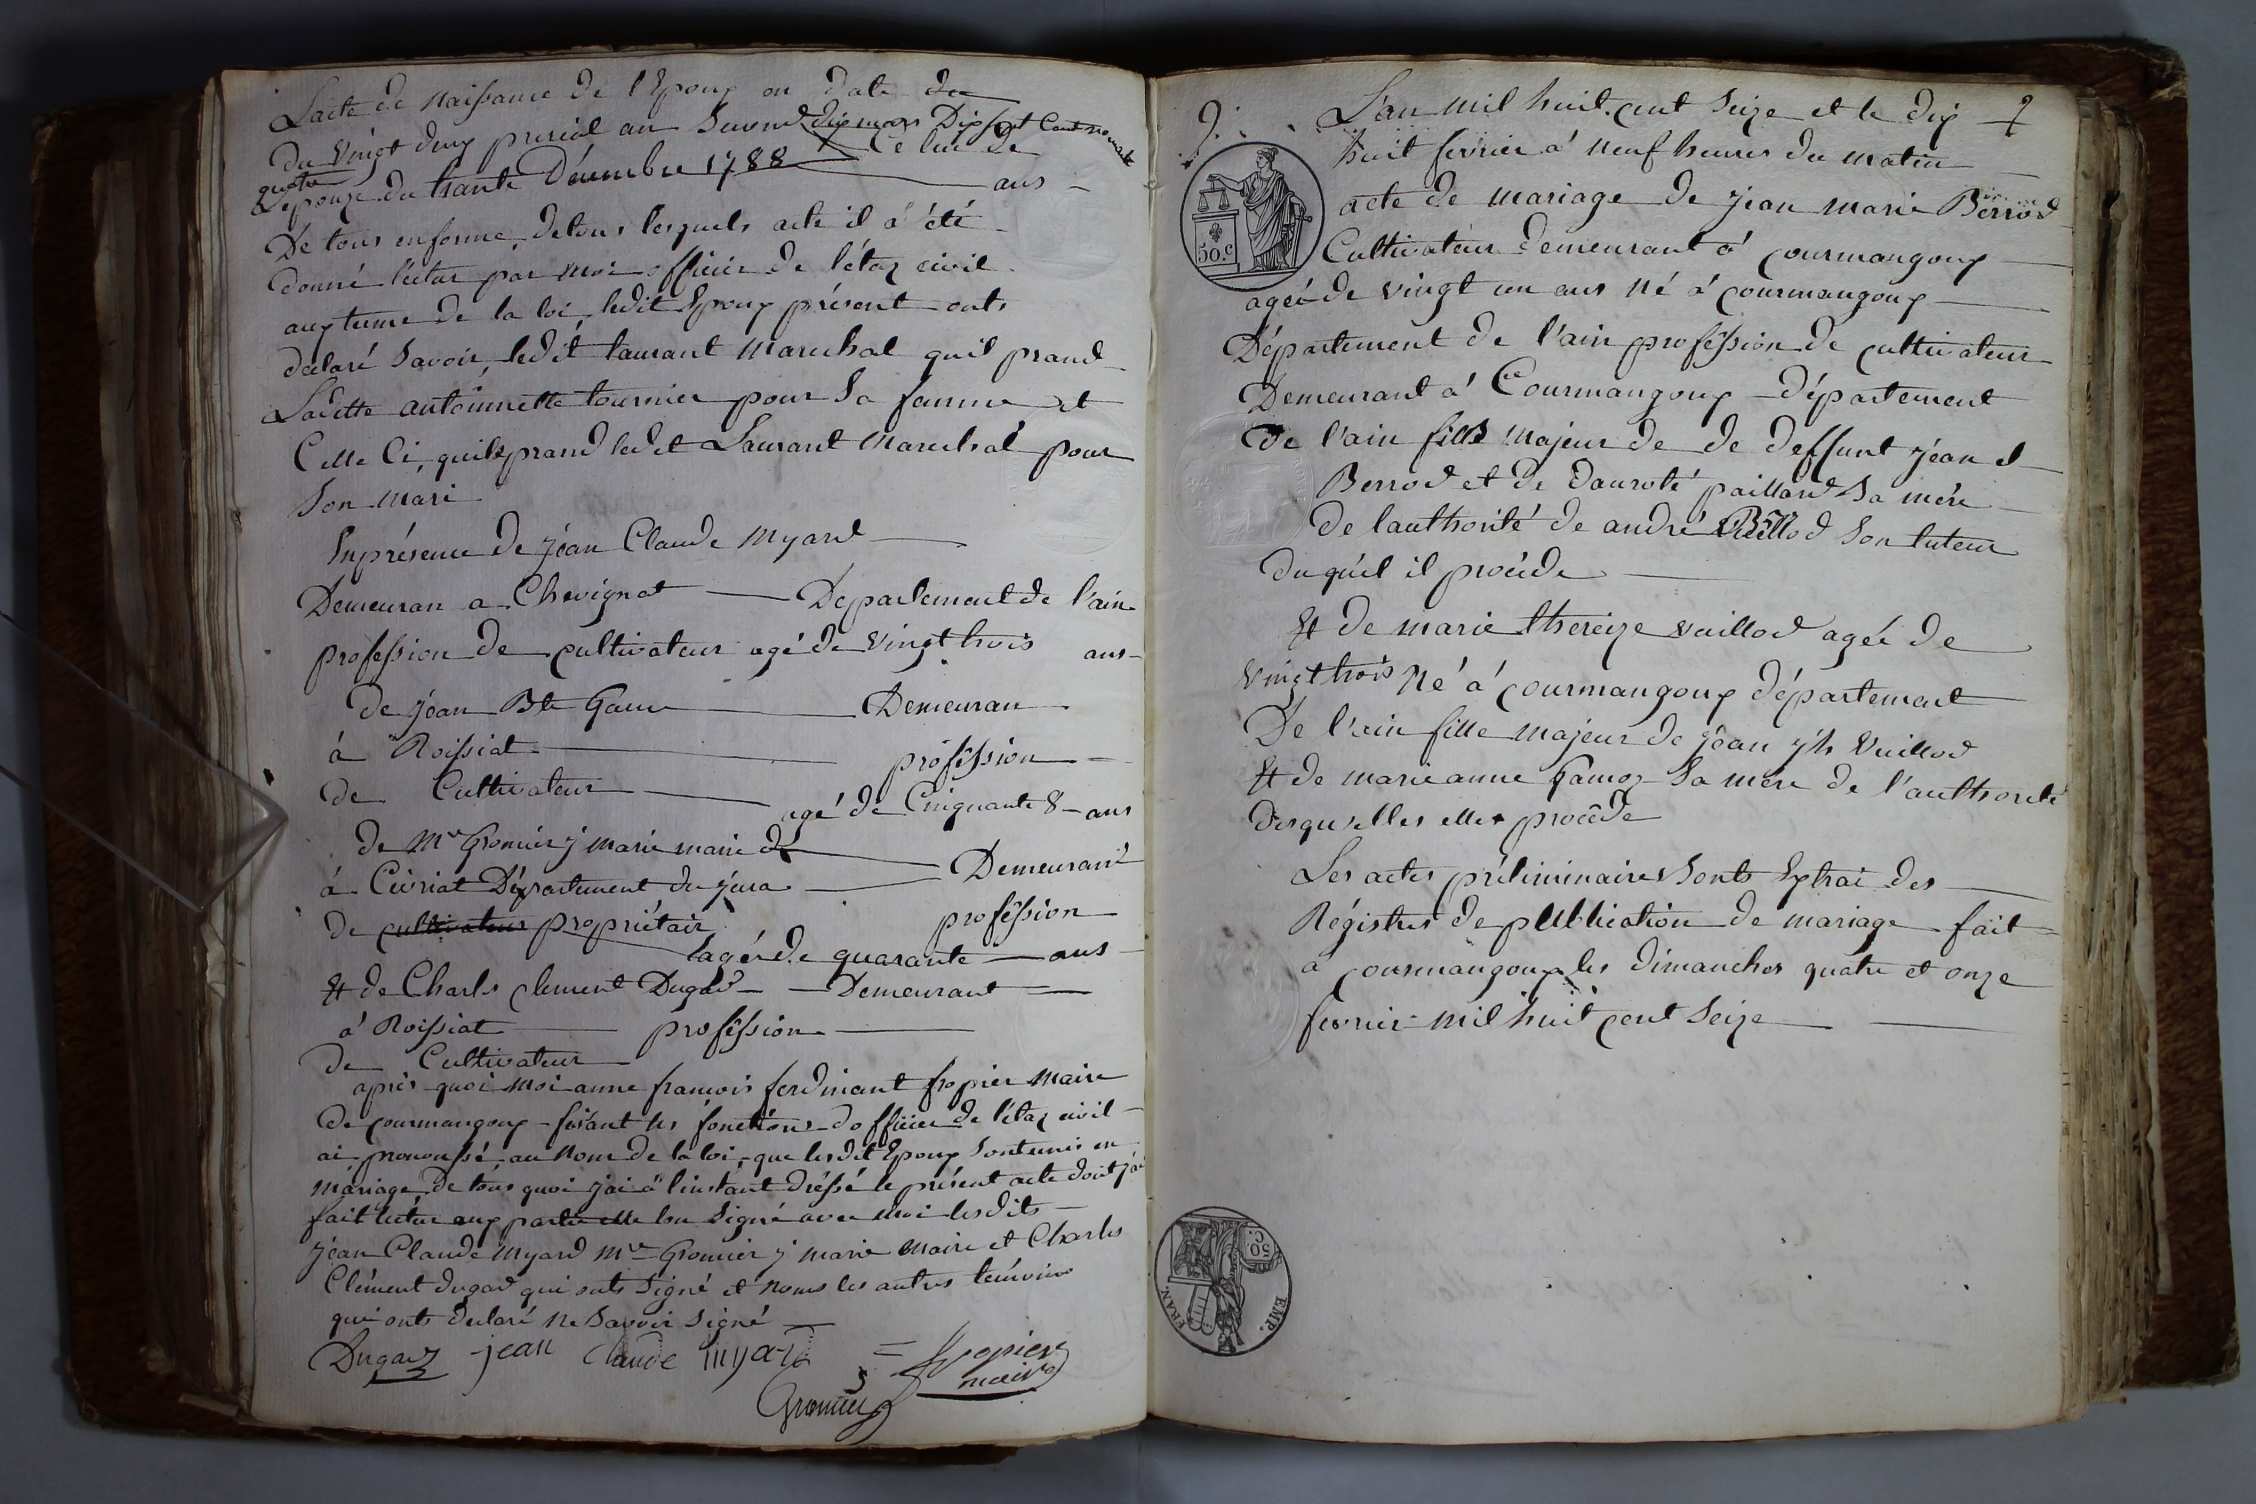 L'acte de Naissance de l'Epoux en date du
du vingt deux prerial an Second dix mars Dix sept cent nonente
quatre Celui de
L'epouze du trante Décembre 1788 ans
De tous en forme, de tous lesquels acte il a été
donné lectur par moi officier de l'état civil
aux terme de la loi, ledit Epoux présent onts
declaré Savoir, ledit laurant Marechal quil prand
Laditte antoinnette tournier pour Sa famme et
Celle Ci, quil prand ledit Laurant Marechal pour
Son mari
En présence de jéan Claude Myard
Demeuran a Chevignat Département de l'ain
profession de cultivateur agé de vingt trois ans
de jéan Bte Gam Demeuran
à Roissiat profession
de Cultivateur agé de Cinquante 8 ans
de Mre Gromier j marie maire d
à Civriat Département du jura Demeurant
de cultivateur propriétair profession
agé de quarante ans
Et de Charls clement Dugad Demeurant
à Roissiat profession
de Cultivateur
après quoi moi anne francois ferdinant fropier maire
de courmangoux faisant les fonctions d'officier de l'état civil
ai pronoussé au nom de la loi, que lesdit Epoux Sont unis en
mariage, De tous quoi j'ai a l'instant dréssé le présent acte dont j'ai
fait lectur aux partie elle on Signé avec moi lesdits
jéan Claude Myard Mre Gromier j marie Maire et Charles
Clément dugad qui onts Signé et Nomis les autres temoins
qui onts declaré Ne Savoir Signé
Dugad jean claude myard fropier
maire
Gromier
9. L'an mil huit cent Seize et le dix 9
huit fevrier à neuf heures du matin
acte de mariage de jean marie Berrod
Cultivateur demeurant à courmangoux
50.C
agée de vingt un ans Né à courmangoux
Département de l'ain profession de cultivateur
Demeurant à Courmangoux Département
de l'ain fills Majeur de de deffunt jéan
Berrod et de Dauroté paillard Sa mère
de lauthorité de andré Son tuteur
duquél il procéde
Et de marie thereize vuillod agée de
vingt trois Né à courmangoux département
De l'ain fille majeur de jéan jh Vuillod
Et de marie anne Gamoz Sa mère de l'authorité
desquelles elle procéde
Les actes préliminaires Sonts Extrai des
Régistres de publication de mariage fait
à courmangoux les dimanches quatre et onze
fevrier mil huit cent Seize
50
C.
EMP. FRAN.